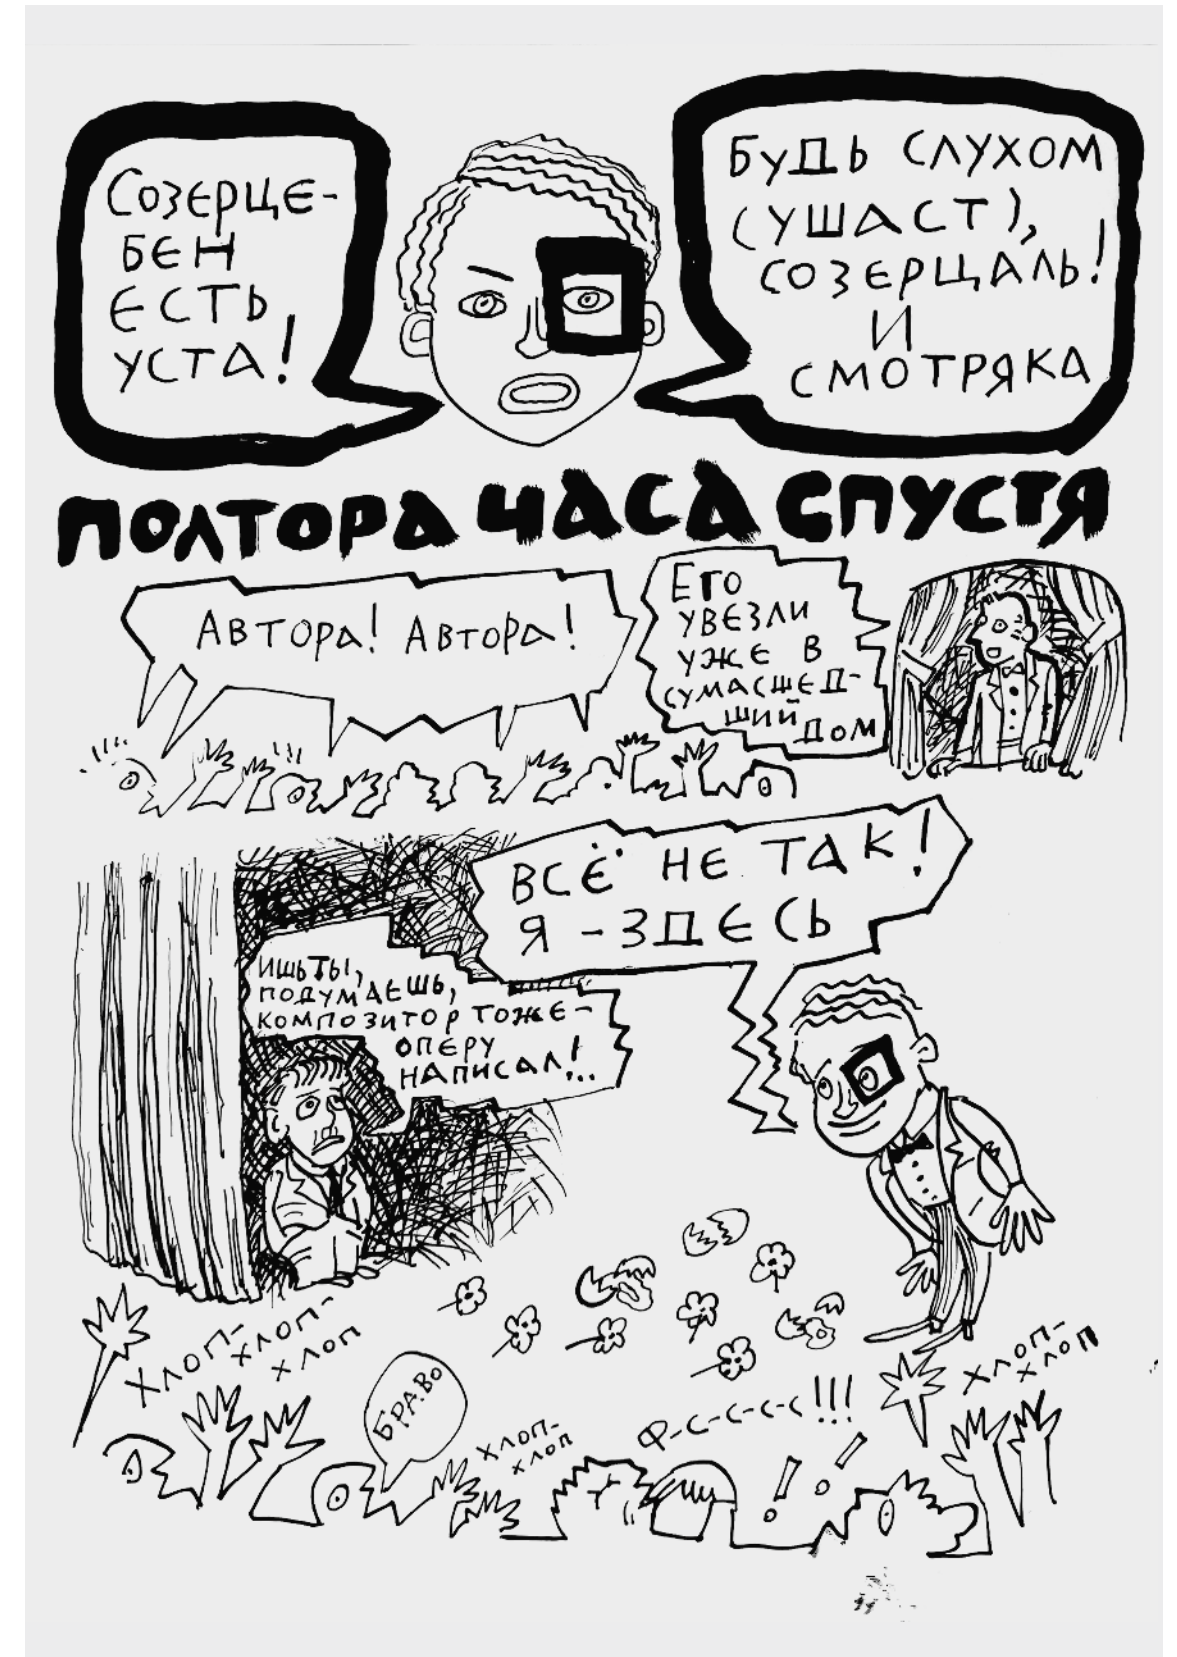 Созерце-
бен
есть
уста!
Будь слухом
(ушаст),
созерцаль!
и
смотряка
ПОЛТОРА ЧАСА СПУСТЯ
Автора! Автора!
Его
увезли
уже в
сумасшед-
ший
дом
Всё не так!
Я - здесь
Ишь ты,
подумаешь,
композитор тоже -
оперу
написал!..
Хлоп-
хлоп-
хлоп
Браво
хлоп-
хлоп
Ф-с-с-с-с!!!
! !
хлоп-
хлоп